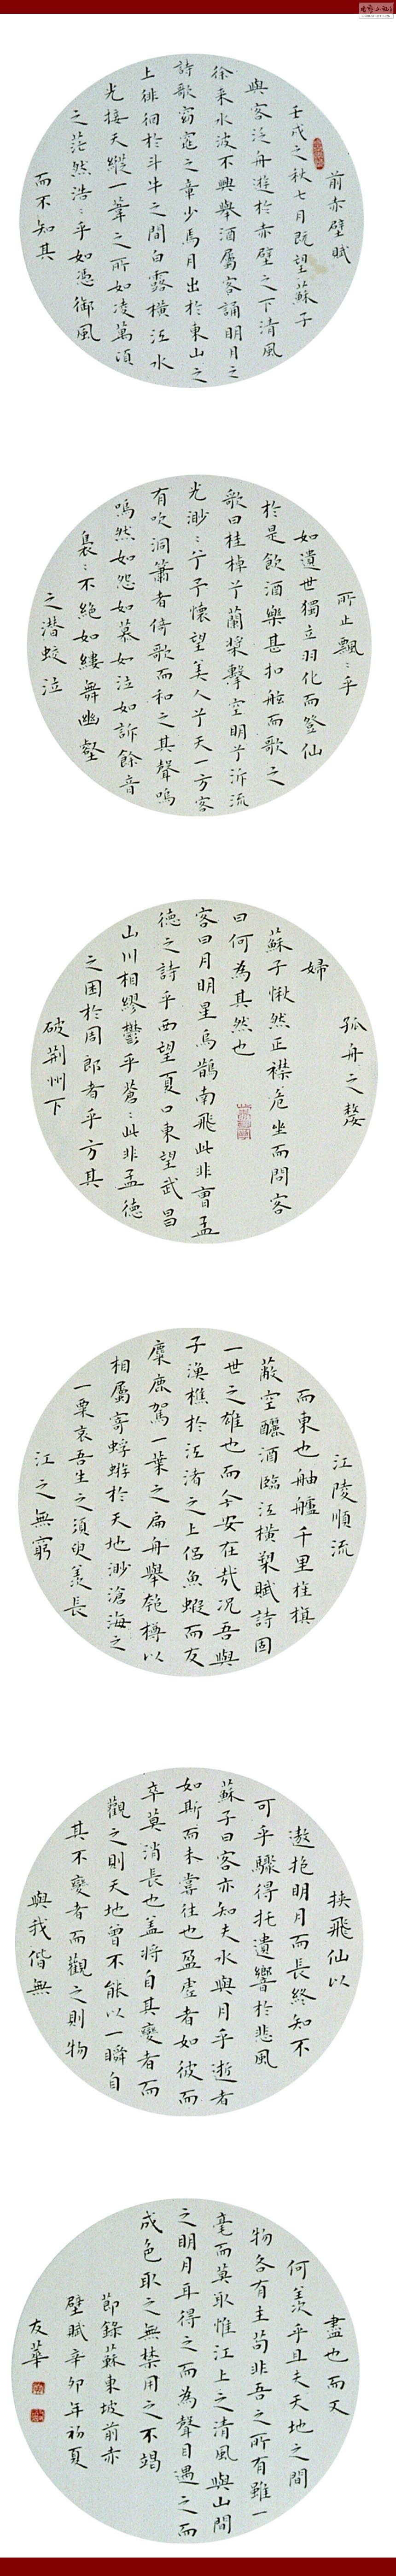 前赤壁賦
壬戌之秋七月既望蘇子
與客泛舟遊於赤壁之下清風
徐來水波不興舉酒屬客誦明月之
詩歌窈窕之章少焉月出於東山之
上徘徊於斗牛之間白露橫江水
光接天縱一葦之所如凌萬頃
之茫然浩:乎如憑御風
而不知其
所止飄:乎
如遺世獨立羽化而登仙
於是飲酒樂甚扣舷而歌之
歌曰桂棹兮蘭槳擊空明兮泝流
光渺:兮予懷望美人兮天一方客
有吹洞簫者倚歌而和之其聲嗚
嗚然如怨如慕如泣如訴餘音
裊:不絕如縷舞幽壑
之潛蛟泣
孤舟之嫠
婦
蘇子愀然正襟危坐而問客
曰何為其然也
客曰月明星烏鵲南飛此非曹孟
德之詩乎西望夏口東望武昌
山川相繆鬱乎蒼:此非孟德
之困於周郎者乎方其
破荊州下
江陵順流
而東也舳艫千里旌旗
蔽空釃酒臨江橫槊賦詩固
一世之雄也而今安在哉況吾與
子漁樵於江渚之上侶魚蝦而友
麋鹿駕一葉之扁舟舉匏樽以
相屬寄蜉蝣於天地渺滄海之
一粟哀吾生之須臾羨長
江之無窮
挾飛仙以
遨抱明月而長終知不
可乎驟得托遺響於悲風
蘇子曰客亦知夫水與月乎逝者
如斯而未嘗往也盈虛者如彼而
卒莫消長也蓋將自其變者而
觀之則天地曾不能以一瞬自
其不變者而觀之則物
與我偕無
盡也而又
何羨乎且夫天地之間
物各有主苟非吾之所有雖一
毫而莫取惟江上之清風與山間
之明月耳得之而為聲目遇之而
成色取之無禁用之不竭
節錄蘇東坡前赤
壁賦辛卯年初夏
友華